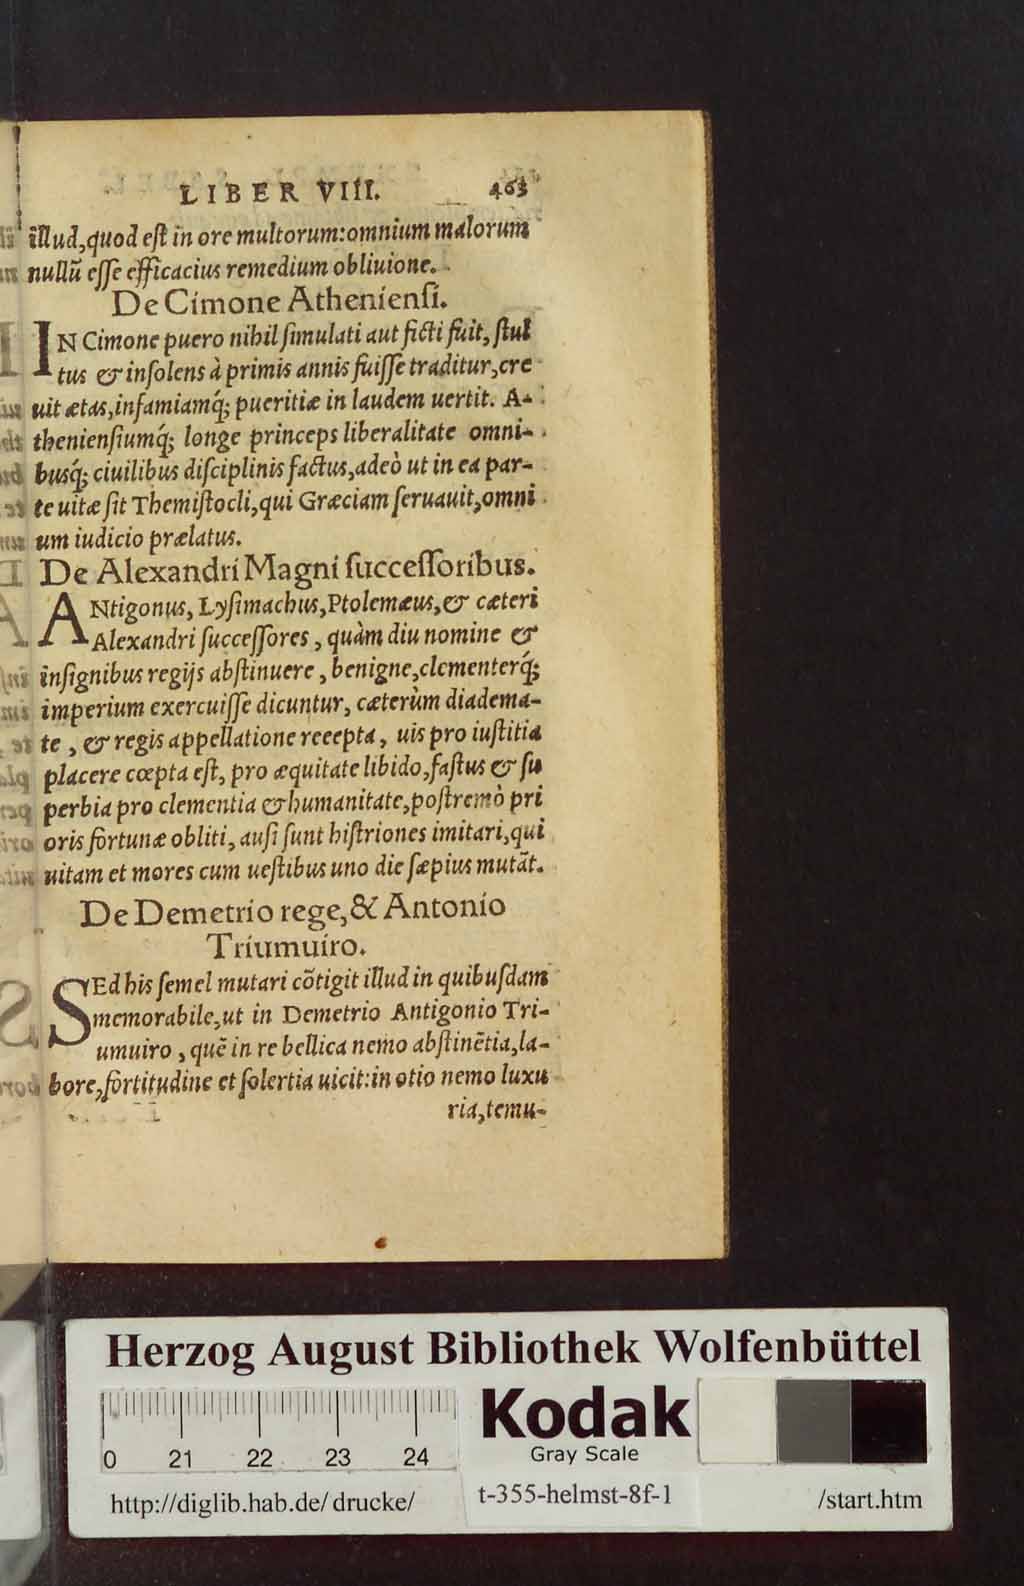 LIBER VIII. 463
illud,quod eſt in ore multorum:omnium malorum
nullū eſſe efficacius remedium obliuione.
De Cimone Athenienſi.
IN Cimone puero nihil ſimulati aut ficti fuit, ſtul
tus & inſolens à primis annis fuiſſe traditur,cre
uit ætas,infamiamq́; pueritiæ in laudem uertit. A-
thenienſiumq́; longe princeps liberalitate omni-
busq́; ciuilibus diſciplinis factus,adeò ut in ea par-
te uitæ ſit Themiſtocli,qui Græciam ſeruauit,omni
um iudicio prælatus.
De Alexandri Magni ſucceſſoribus.
ANtigonus, Lyſimachus,Ptolemæus,& cæteri
Alexandri ſucceſſores, quàm diu nomine &
inſignibus regijs abſtinuere, benigne,clementerq́;
imperium exercuiſſe dicuntur, cæterùm diadema-
te, & regis appellatione recepta, uis pro iuſtitia
placere cœpta eſt, pro æquitate libido,faſtus & ſu
perbia pro clementia & humanitate,poſtremò pri
oris fortunæ obliti, auſi ſunt hiſtriones imitari,qui
uitam et mores cum ueſtibus uno die ſæpius mutāt.
De Demetrio rege,& Antonio
Triumuiro.
SEd his ſemel mutari cōtigit illud in quibuſdam
memorabile,ut in Demetrio Antigonio Tri-
umuiro, quē in re bellica nemo abſtinētia,la-
bore,fortitudine et ſolertia uicit:in otio nemo luxu
ria,temu-
Herzog August Bibliothek Wolfenbüttel
0 21 22 23 24
Kodak
Gray Scale
http://diglib.hab.de/drucke/ t-355-helmst-8f-1 /start.htm